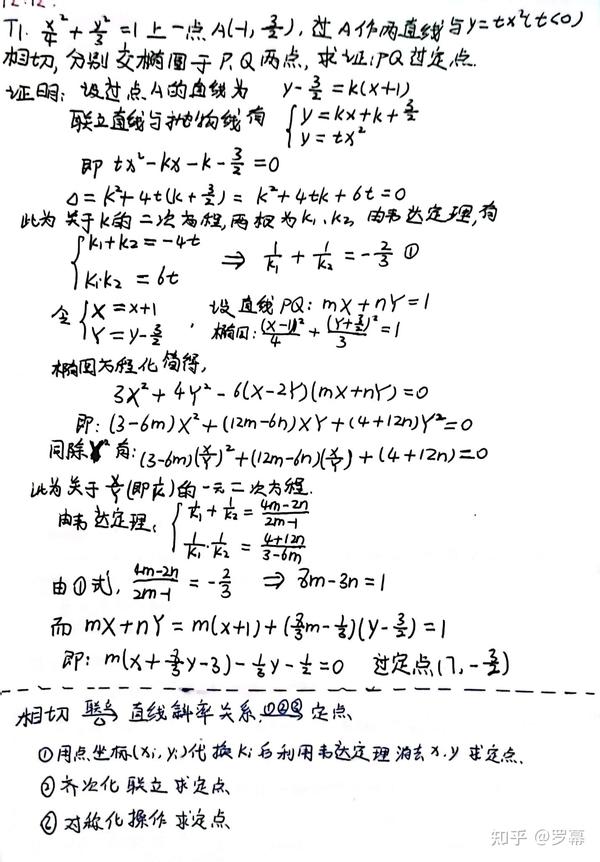 12.12.
T1. x²/4 + y²/3 = 1 上一点 A(-1, 3/2), 过A作两直线与 y=tx²(t<0)
相切, 分别交椭圆于 P、Q 两点, 求证: PQ 过定点.
证明: 设过点A的直线为 y-3/2=k(x+1)
联立直线与抛物线有 { y=kx+k+3/2
y=tx²
即 tx²-kx-k-3/2=0
Δ=k²+4t(k+3/2)= k²+4tk+6t=0
此为关于k的二次方程, 两根为k₁、k₂ 由韦达定理, 有
{ k₁+k₂=-4t
k₁·k₂ = 6t ⇒ 1/k₁ + 1/k₂ = -2/3 ①
令 { X=x+1
Y=y-3/2 , 设直线PQ: mX+nY=1
椭圆: (X-1)²/4 + (Y+3/2)²/3 =1
椭圆方程化简得,
3X²+4Y²-6(X-2Y)(mX+nY)=0
即: (3-6m)X²+(12m-6n)XY+(4+12n)Y²=0
同除Y²有: (3-6m)(X/Y)²+(12m-6n)(X/Y)+(4+12n)=0
此为关于X/Y(即1/k)的一元二次方程.
由韦达定理, { 1/k₁+1/k₂ = (4m-2n)/(2m-1)
1/k₁·1/k₂ = (4+12n)/(3-6m)
由①式, (4m-2n)/(2m-1) = -2/3 ⇒ 8m-3n=1
而 mX+nY=m(x+1)+(8/3m-1/3)(y-3/2)=1
即: m(x+8/3y-3)-1/3y-1/2=0 过定点(7,-3/2)
相切 联立⇒Δ 直线斜率关系 ①②③⇒ 定点
①用点坐标(xi,yi)代换ki后利用韦达定理消去x,y求定点.
②齐次化联立求定点
③对称化操作求定点
知乎 @罗幕